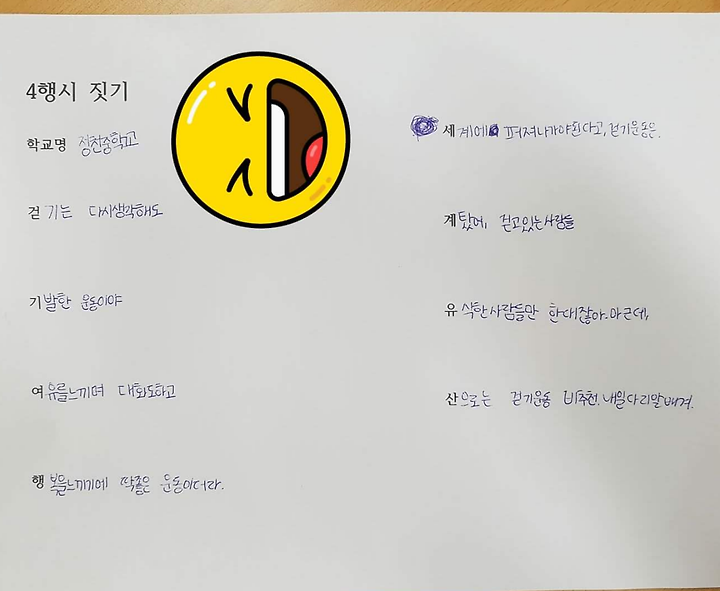 4행시 짓기
학교명 정천중학교
걷기는 다시생각해도
기발한 운동이야
여유를느끼며 대화도하고
행복을느끼기에 딱좋은 운동이더라.
세계에 퍼져나가야된다고, 걷기운동은.
계탔어, 걷고있는사람들
유식한사람들만 한대잖아. 아 근데,
산으로는 걷기운동 비추천. 내일다리알배겨.